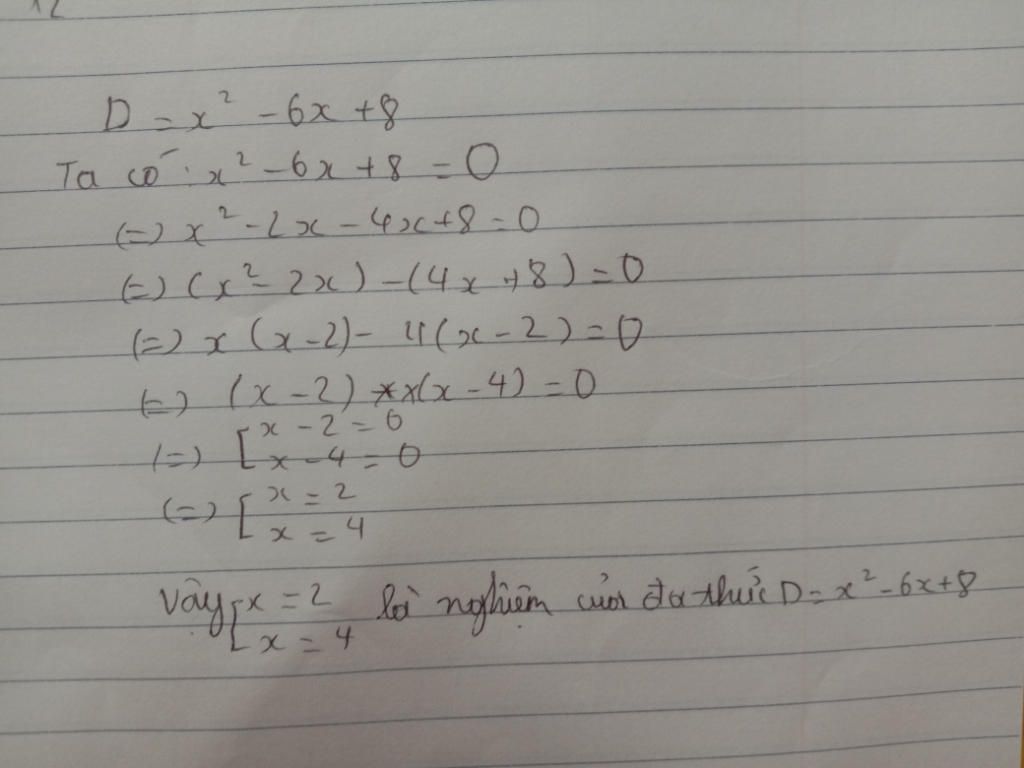 D = x² - 6x + 8
Ta có : x² - 6x + 8 = 0
(=) x² - 2x - 4x + 8 = 0
(=) (x² - 2x) - (4x + 8) = 0
(=) x (x - 2) - 4(x - 2) = 0
(=) (x - 2) x (x - 4) = 0
(=) [ x - 2 = 0
x - 4 = 0
(=) [ x = 2
x = 4
Vậy [ x = 2 là nghiệm của đa thức D = x² - 6x + 8
x = 4